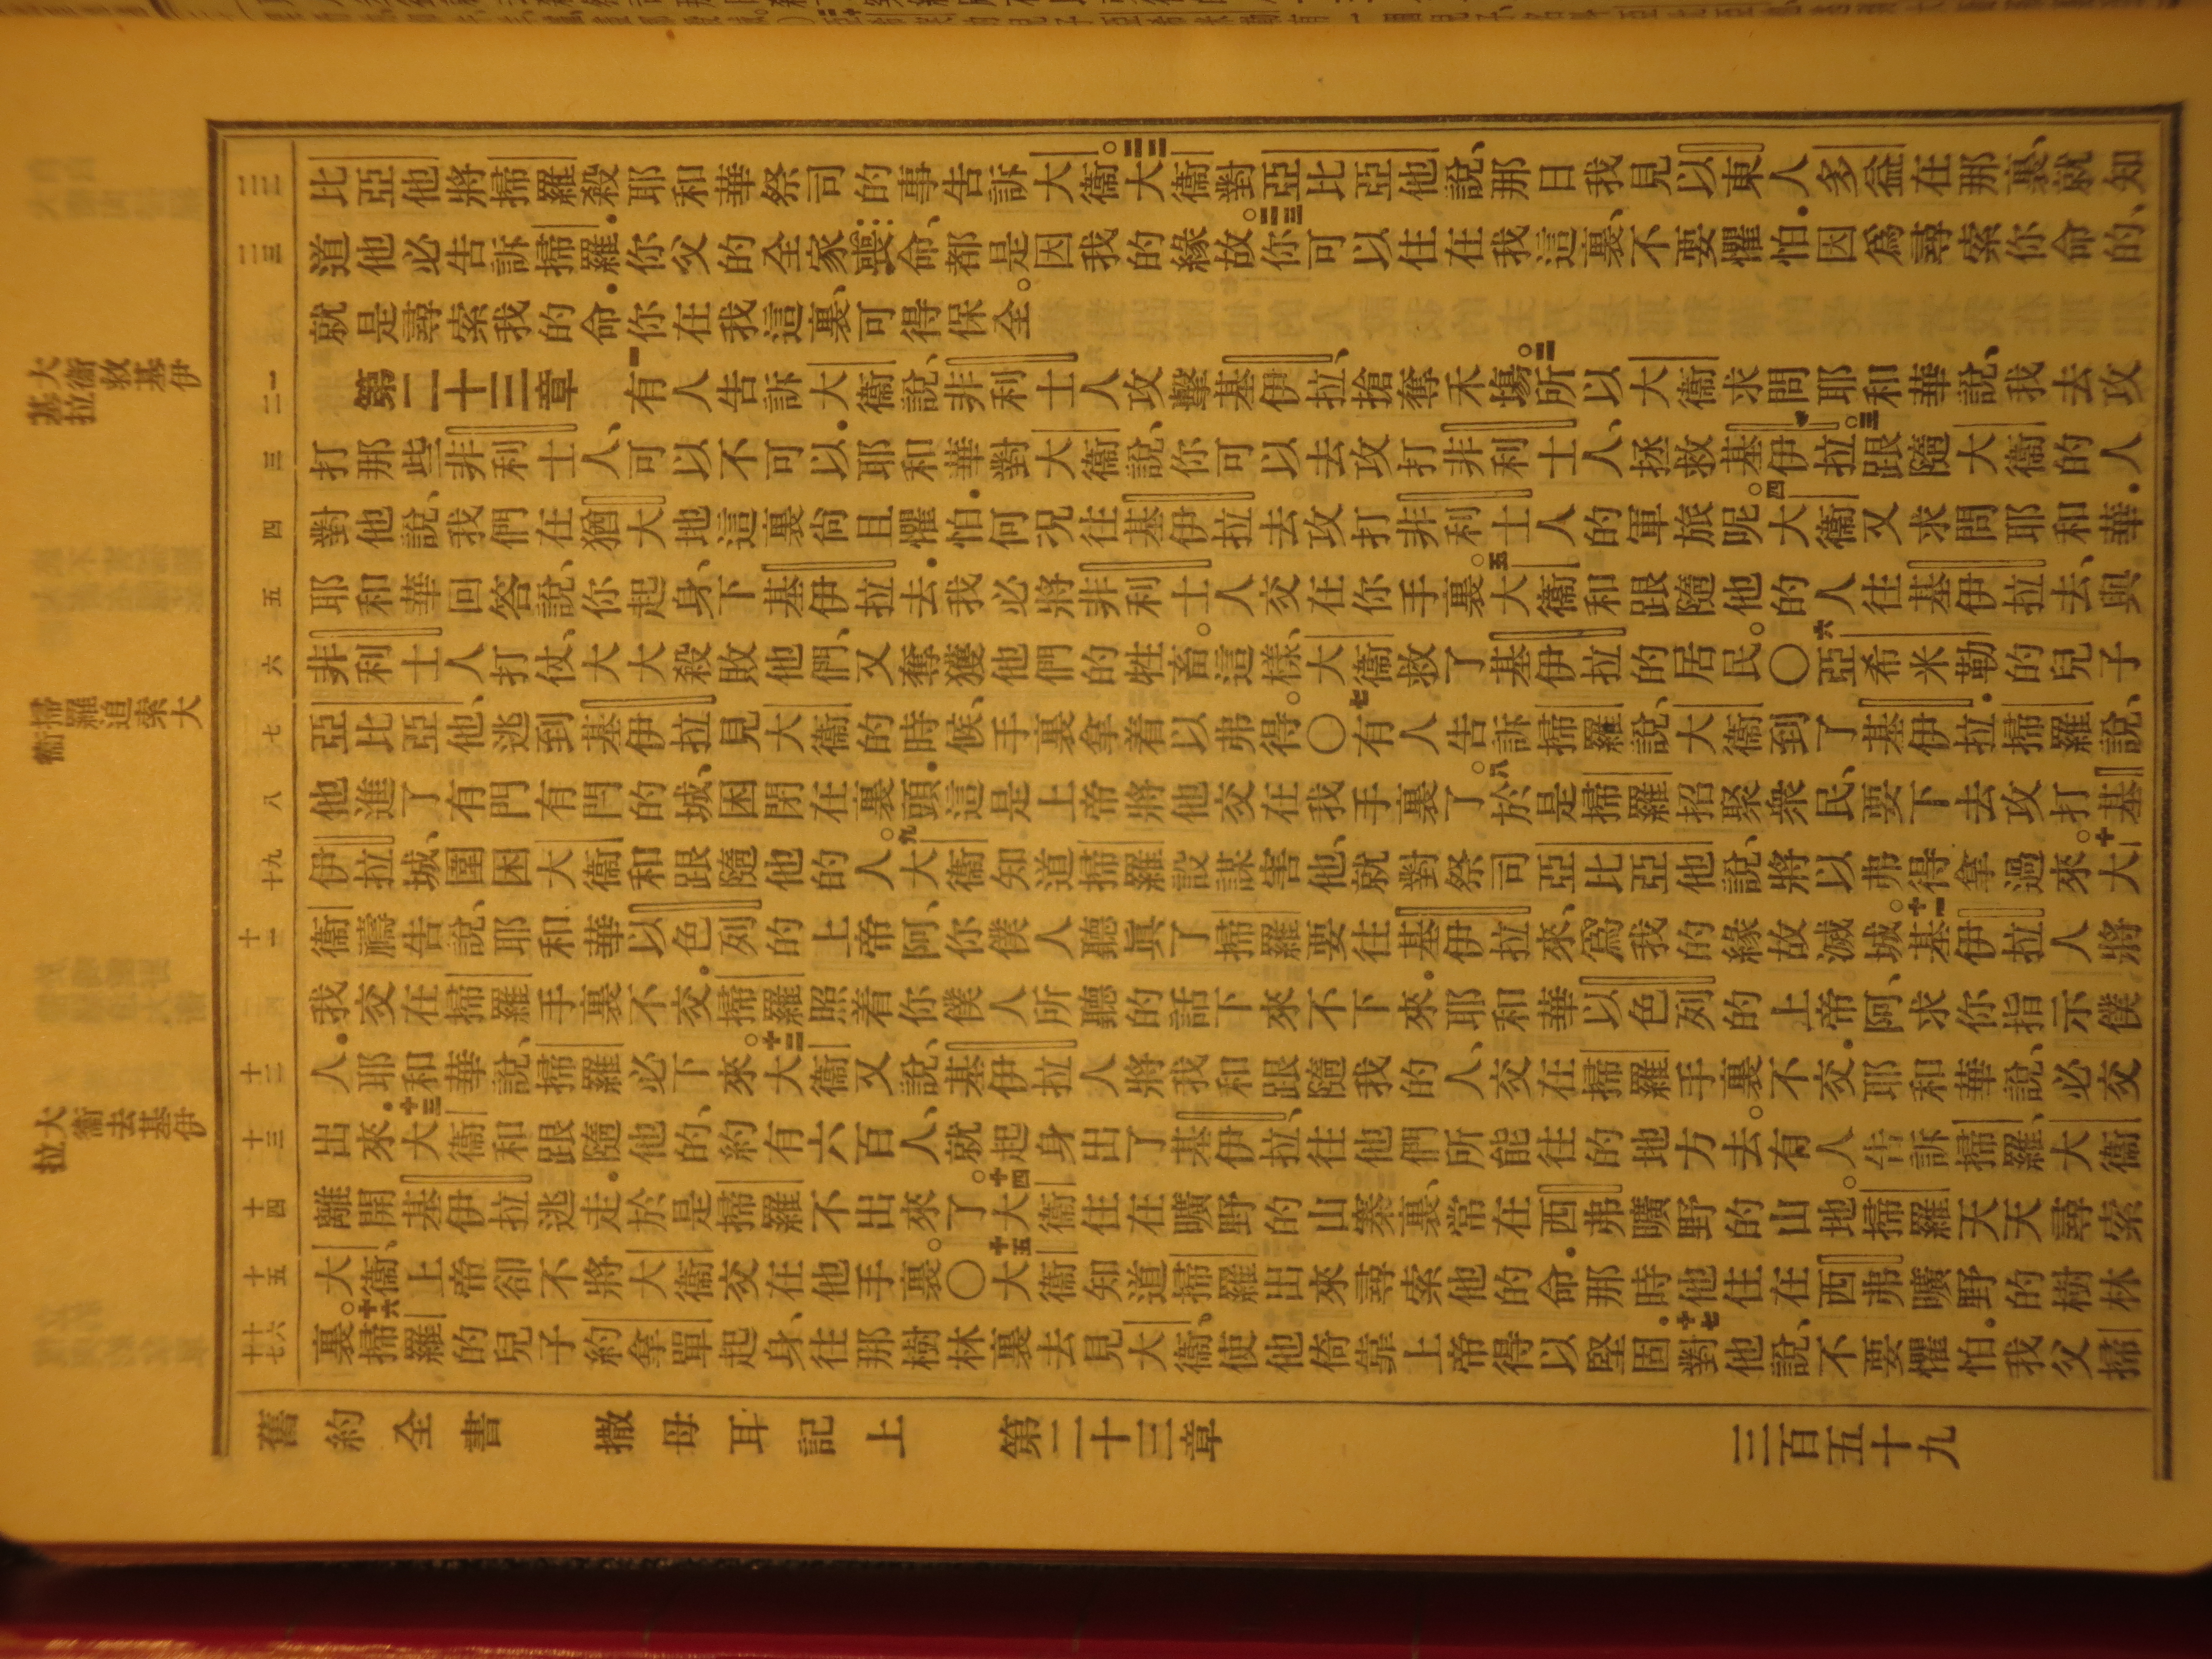 大衛救基伊
基拉
掃羅追索大
衛
大衛去基伊
拉
二二 比亞他將掃羅殺耶和華祭司的事告訴大衛。二二大衛對亞比亞他說、那日我見以東人多益在那裏、就知
二三 道他必告訴掃羅.你父的全家喪命、都是因我的緣故。二三你可以住在我這裏、不要懼怕.因爲尋索你命的、
就是尋索我的命.你在我這裏、可得保全。
一二 第二十三章 一有人告訴大衛說、非利士人攻擊基伊拉、搶奪禾場。二所以大衛求問耶和華說、我去攻
三 打那些非利士人、可以不可以.耶和華對大衛說、你可以去攻打非利士人、拯救基伊拉。三跟隨大衛的人
四 對他說、我們在猶大地這裏尙且懼怕.何況往基伊拉去攻打非利士人的軍旅呢。四大衛又求問耶和華.
五 耶和華回答說、你起身、下基伊拉去.我必將非利士人交在你手裏。五大衛和跟隨他的人往基伊拉去、與
六 非利士人打仗、大大殺敗他們、又奪獲他們的牲畜。這樣、大衛救了基伊拉的居民。〇六亞希米勒的兒子
七 亞比亞他、逃到基伊拉見大衛的時候、手裏拿着以弗得。〇七有人告訴掃羅說、大衛到了基伊拉.掃羅說、
八 他進了有門有閂的城、困閉在裏頭.這是上帝將他交在我手裏了。八於是掃羅招聚衆民、要下去攻打基
十九 伊拉城、圍困大衛和跟隨他的人。九大衛知道掃羅設謀害他、就對祭司亞比亞他說、將以弗得拿過來。十大
十一 衛禱告說、耶和華以色列的上帝阿、你僕人聽眞了掃羅要往基伊拉來、爲我的緣故滅城。十一基伊拉人將
我交在掃羅手裏不交.掃羅照着你僕人所聽的話下來不下來.耶和華以色列的上帝阿、求你指示僕
十二 人.耶和華說、掃羅必下來。十二大衛又說、基伊拉人將我和跟隨我的人、交在掃羅手裏不交.耶和華說、必交
十三 出來.十三大衛和跟隨他的、約有六百人、就起身出了基伊拉、往他們所能往的地方去。有人告訴掃羅、大衛
十四 離開基伊拉逃走.於是掃羅不出來了。十四大衛住在曠野的山寨裏、常在西弗曠野的山地。掃羅天天尋索
十五 大衛、上帝卻不將大衛交在他手裏。〇十五大衛知道掃羅出來尋索他的命.那時他住在西弗曠野的樹林
十六十七 裏。十六掃羅的兒子約拿單起身、往那樹林裏去見大衛、使他倚靠上帝得以堅固.十七對他說、不要懼怕.我父掃
舊約全書 撒母耳記上 第二十三章 三百五十九